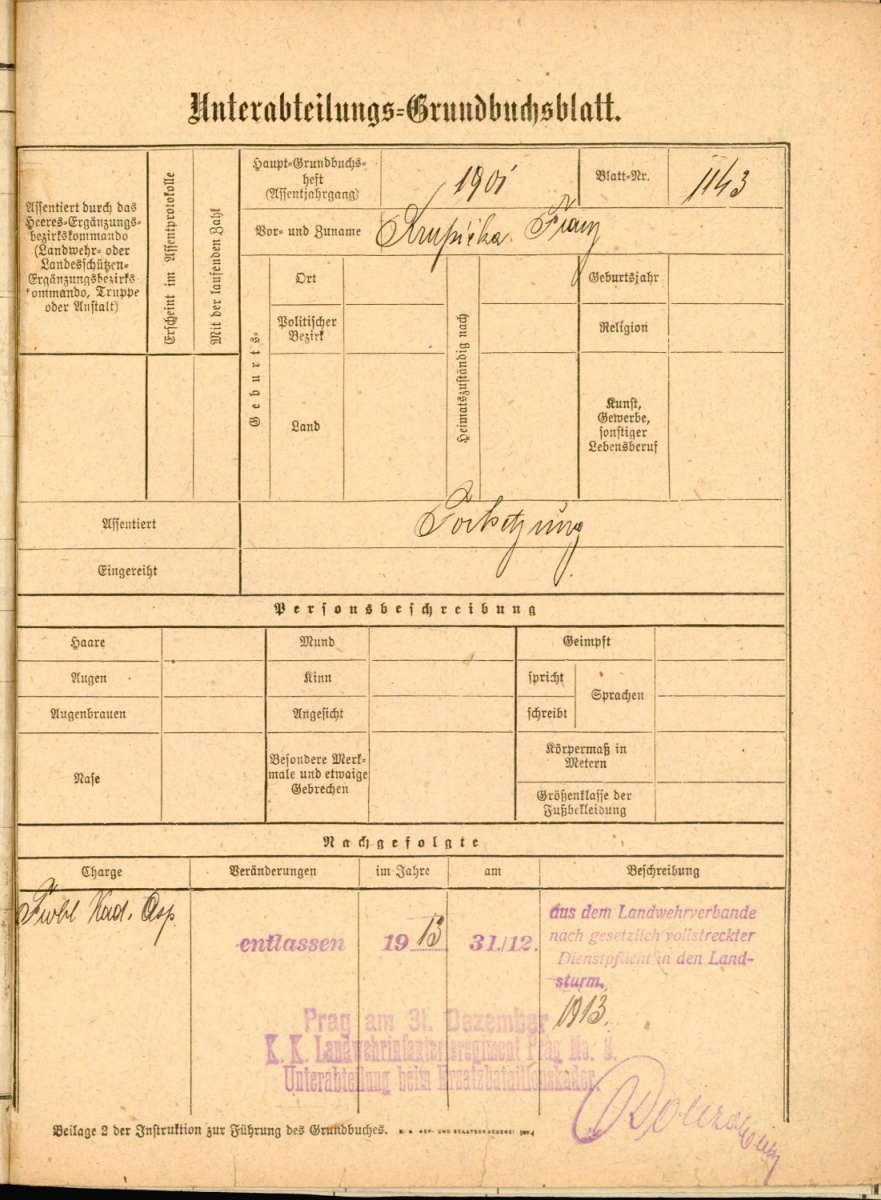 Unterabteilungs-Grundbuchsblatt.
Assentiert durch das
Heeres-Ergänzungs-
bezirkskommando
(Landwehr- oder
Landesschützen-
Ergänzungsbezirks
kommando, Truppe
oder Anstalt)
Erscheint im Assentprotokolle
Mit der laufenden Zahl
Haupt-Grundbuchs-
heft
(Assentjahrgang)
1901
Blatt-Nr.
1143
Vor- und Zuname
Krupička Franz
Geburts-
Ort
Politischer
Bezirk
Land
Heimatszuständig nach
Geburtsjahr
Religion
Kunst,
Gewerbe,
sonstiger
Lebensberuf
Assentiert
Fortsetzung
Eingereiht
Personsbeschreibung
Haare
Mund
Geimpft
Augen
Kinn
spricht
Sprachen
Augenbrauen
Angesicht
schreibt
Nase
Besondere Merk-
male und etwaige
Gebrechen
Körpermaß in
Metern
Größenklasse der
Fußbekleidung
Nachgefolgte
Charge
Veränderungen
im Jahre
am
Beschreibung
Kad. Asp.
entlassen
1913
31./12.
aus dem Landwehrverbande
nach gesetzlich vollstreckter
Dienstpflicht in den Land-
sturm.
Prag am 31. Dezember 1913.
K. K. Landwehrinfanterieregiment Prag No. 8.
Unterabteilung beim Ersatzbataillonskader.
Beilage 2 der Instruktion zur Führung des Grundbuches.
K. K. HOF- UND STAATSDRUCKEREI